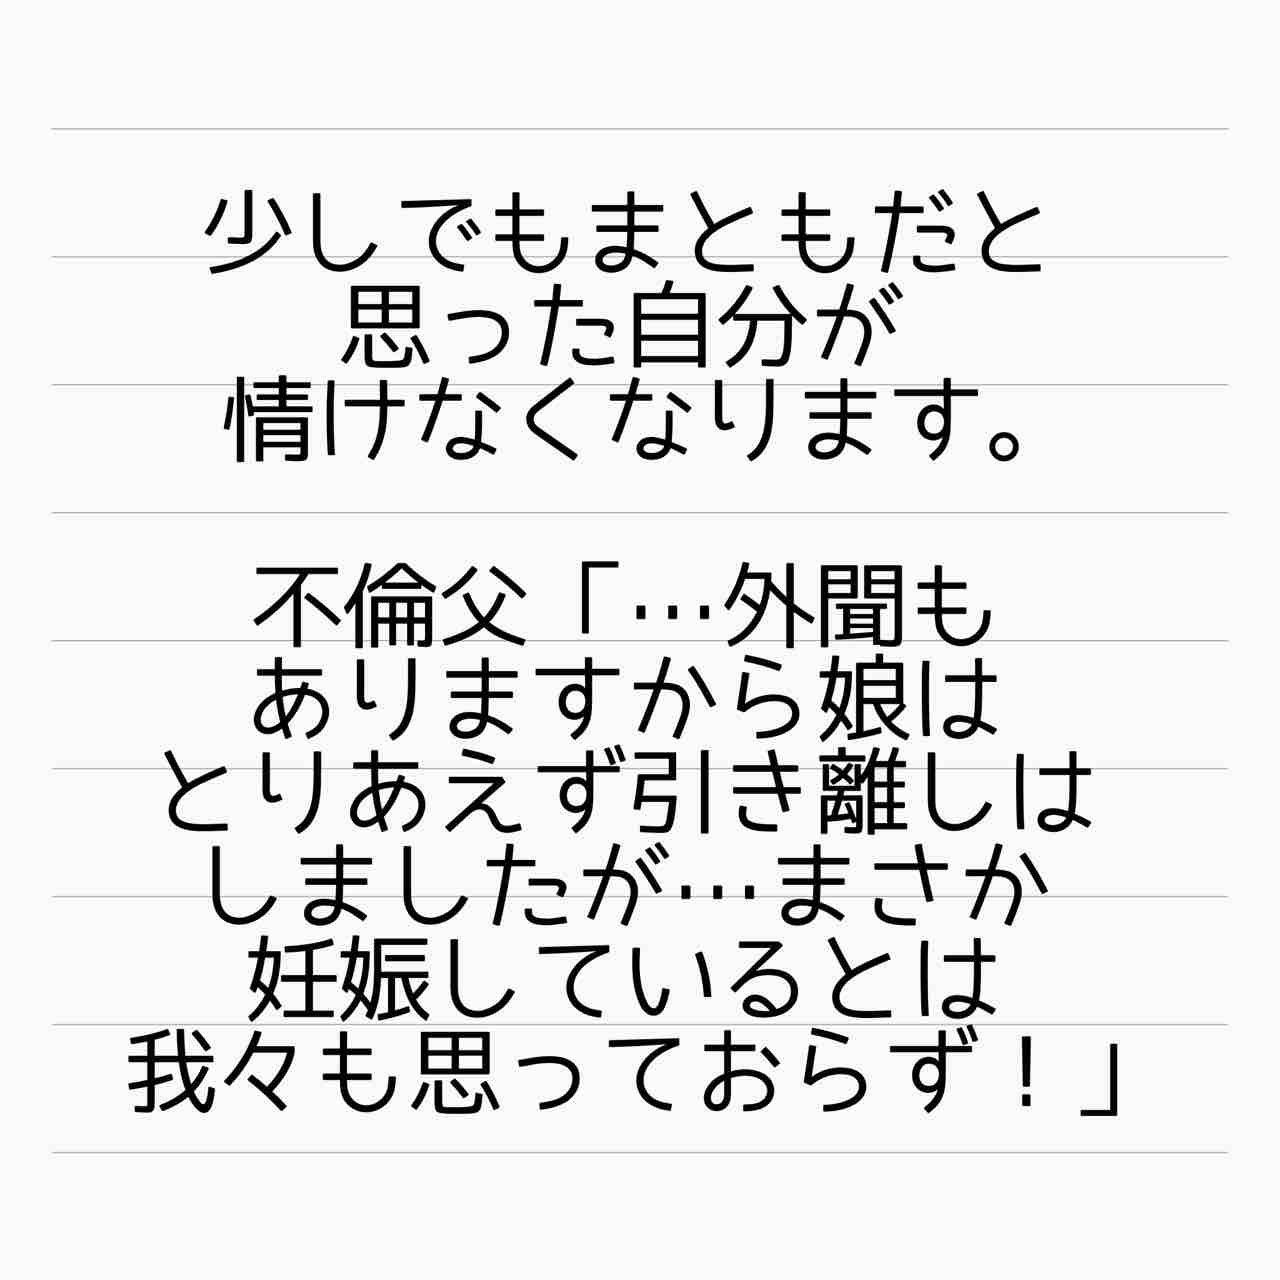 少しでもまともだと
思った自分が
情けなくなります。
不倫父「…外聞も
ありますから娘は
とりあえず引き離しは
しましたが…まさか
妊娠しているとは
我々も思っておらず！」